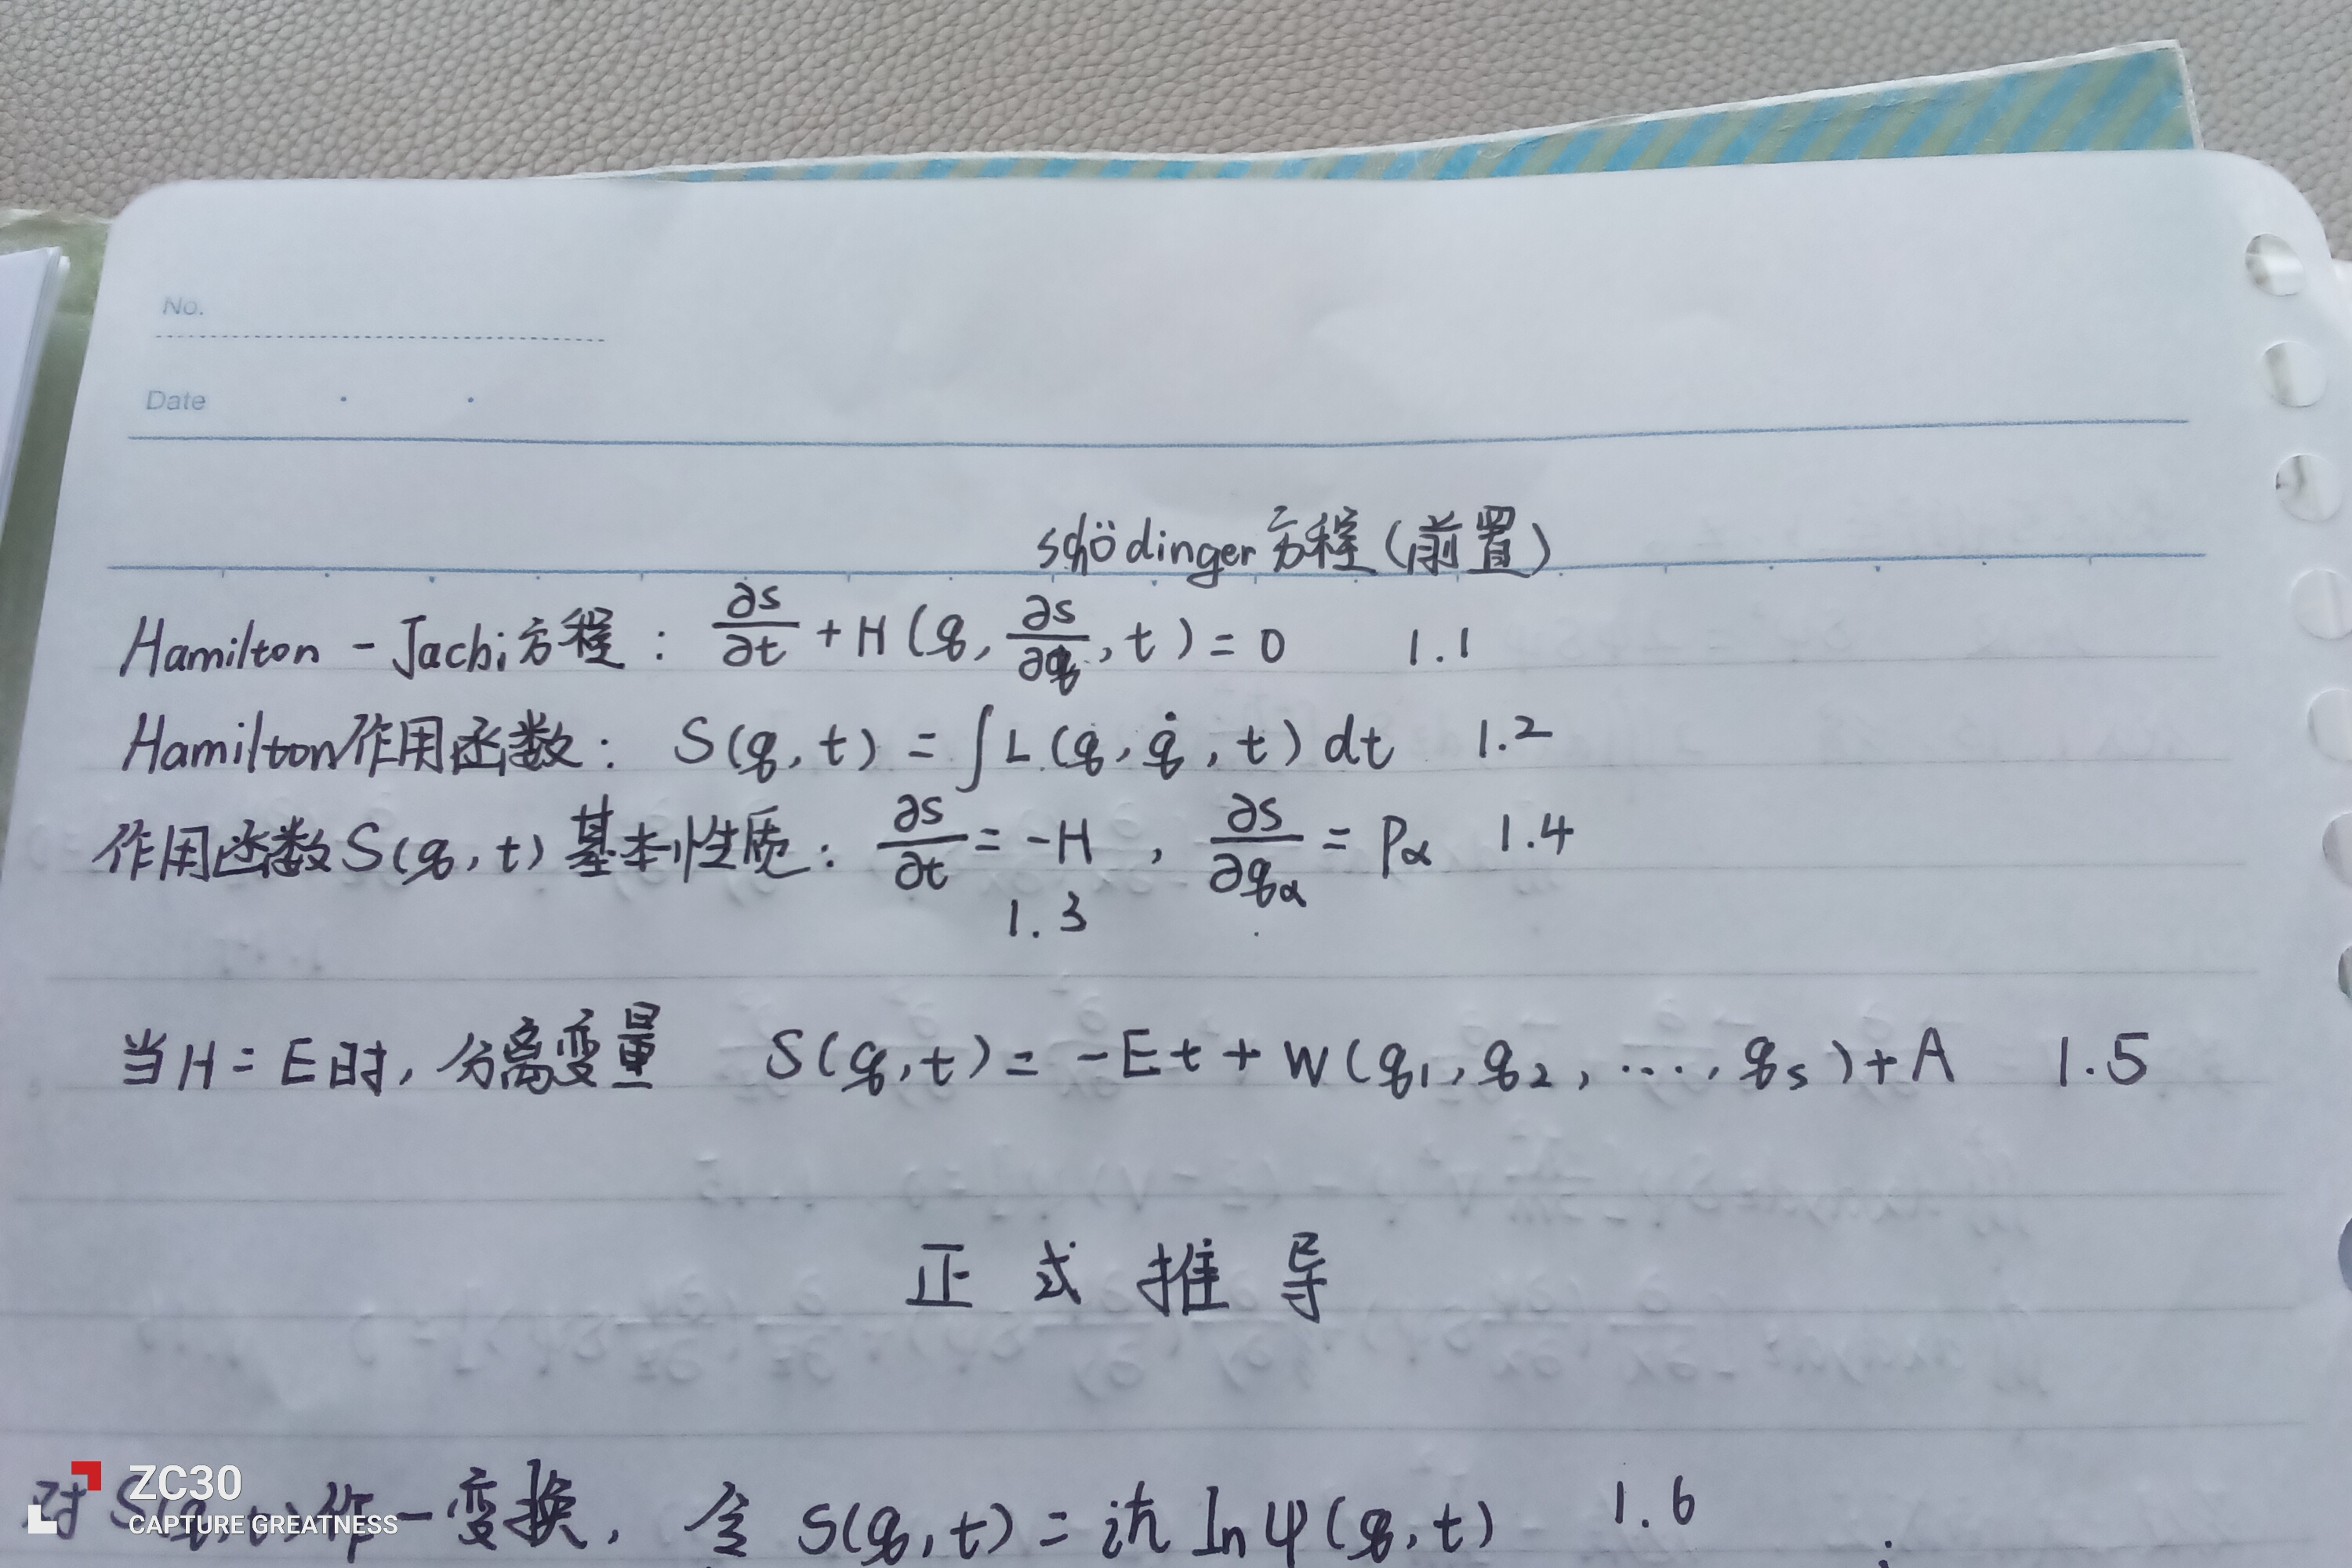 No.
Date
schödinger方程(前置)
Hamilton - Jacbi方程: ∂s/∂t + H(q, ∂s/∂q, t) = 0 1.1
Hamilton作用函数: S(q, t) = ∫L(q, q̇, t) dt 1.2
作用函数S(q, t)基本性质: ∂s/∂t = -H, ∂s/∂qα = pα 1.4
1.3
当H = E时, 分离变量 S(q, t) = -Et + W(q₁, q₂, ..., qₛ) + A 1.5
正式推导
对S(q, t)作一变换, 令 S(q, t) = iħ ln ψ(q, t) 1.6
ZC30
CAPTURE GREATNESS